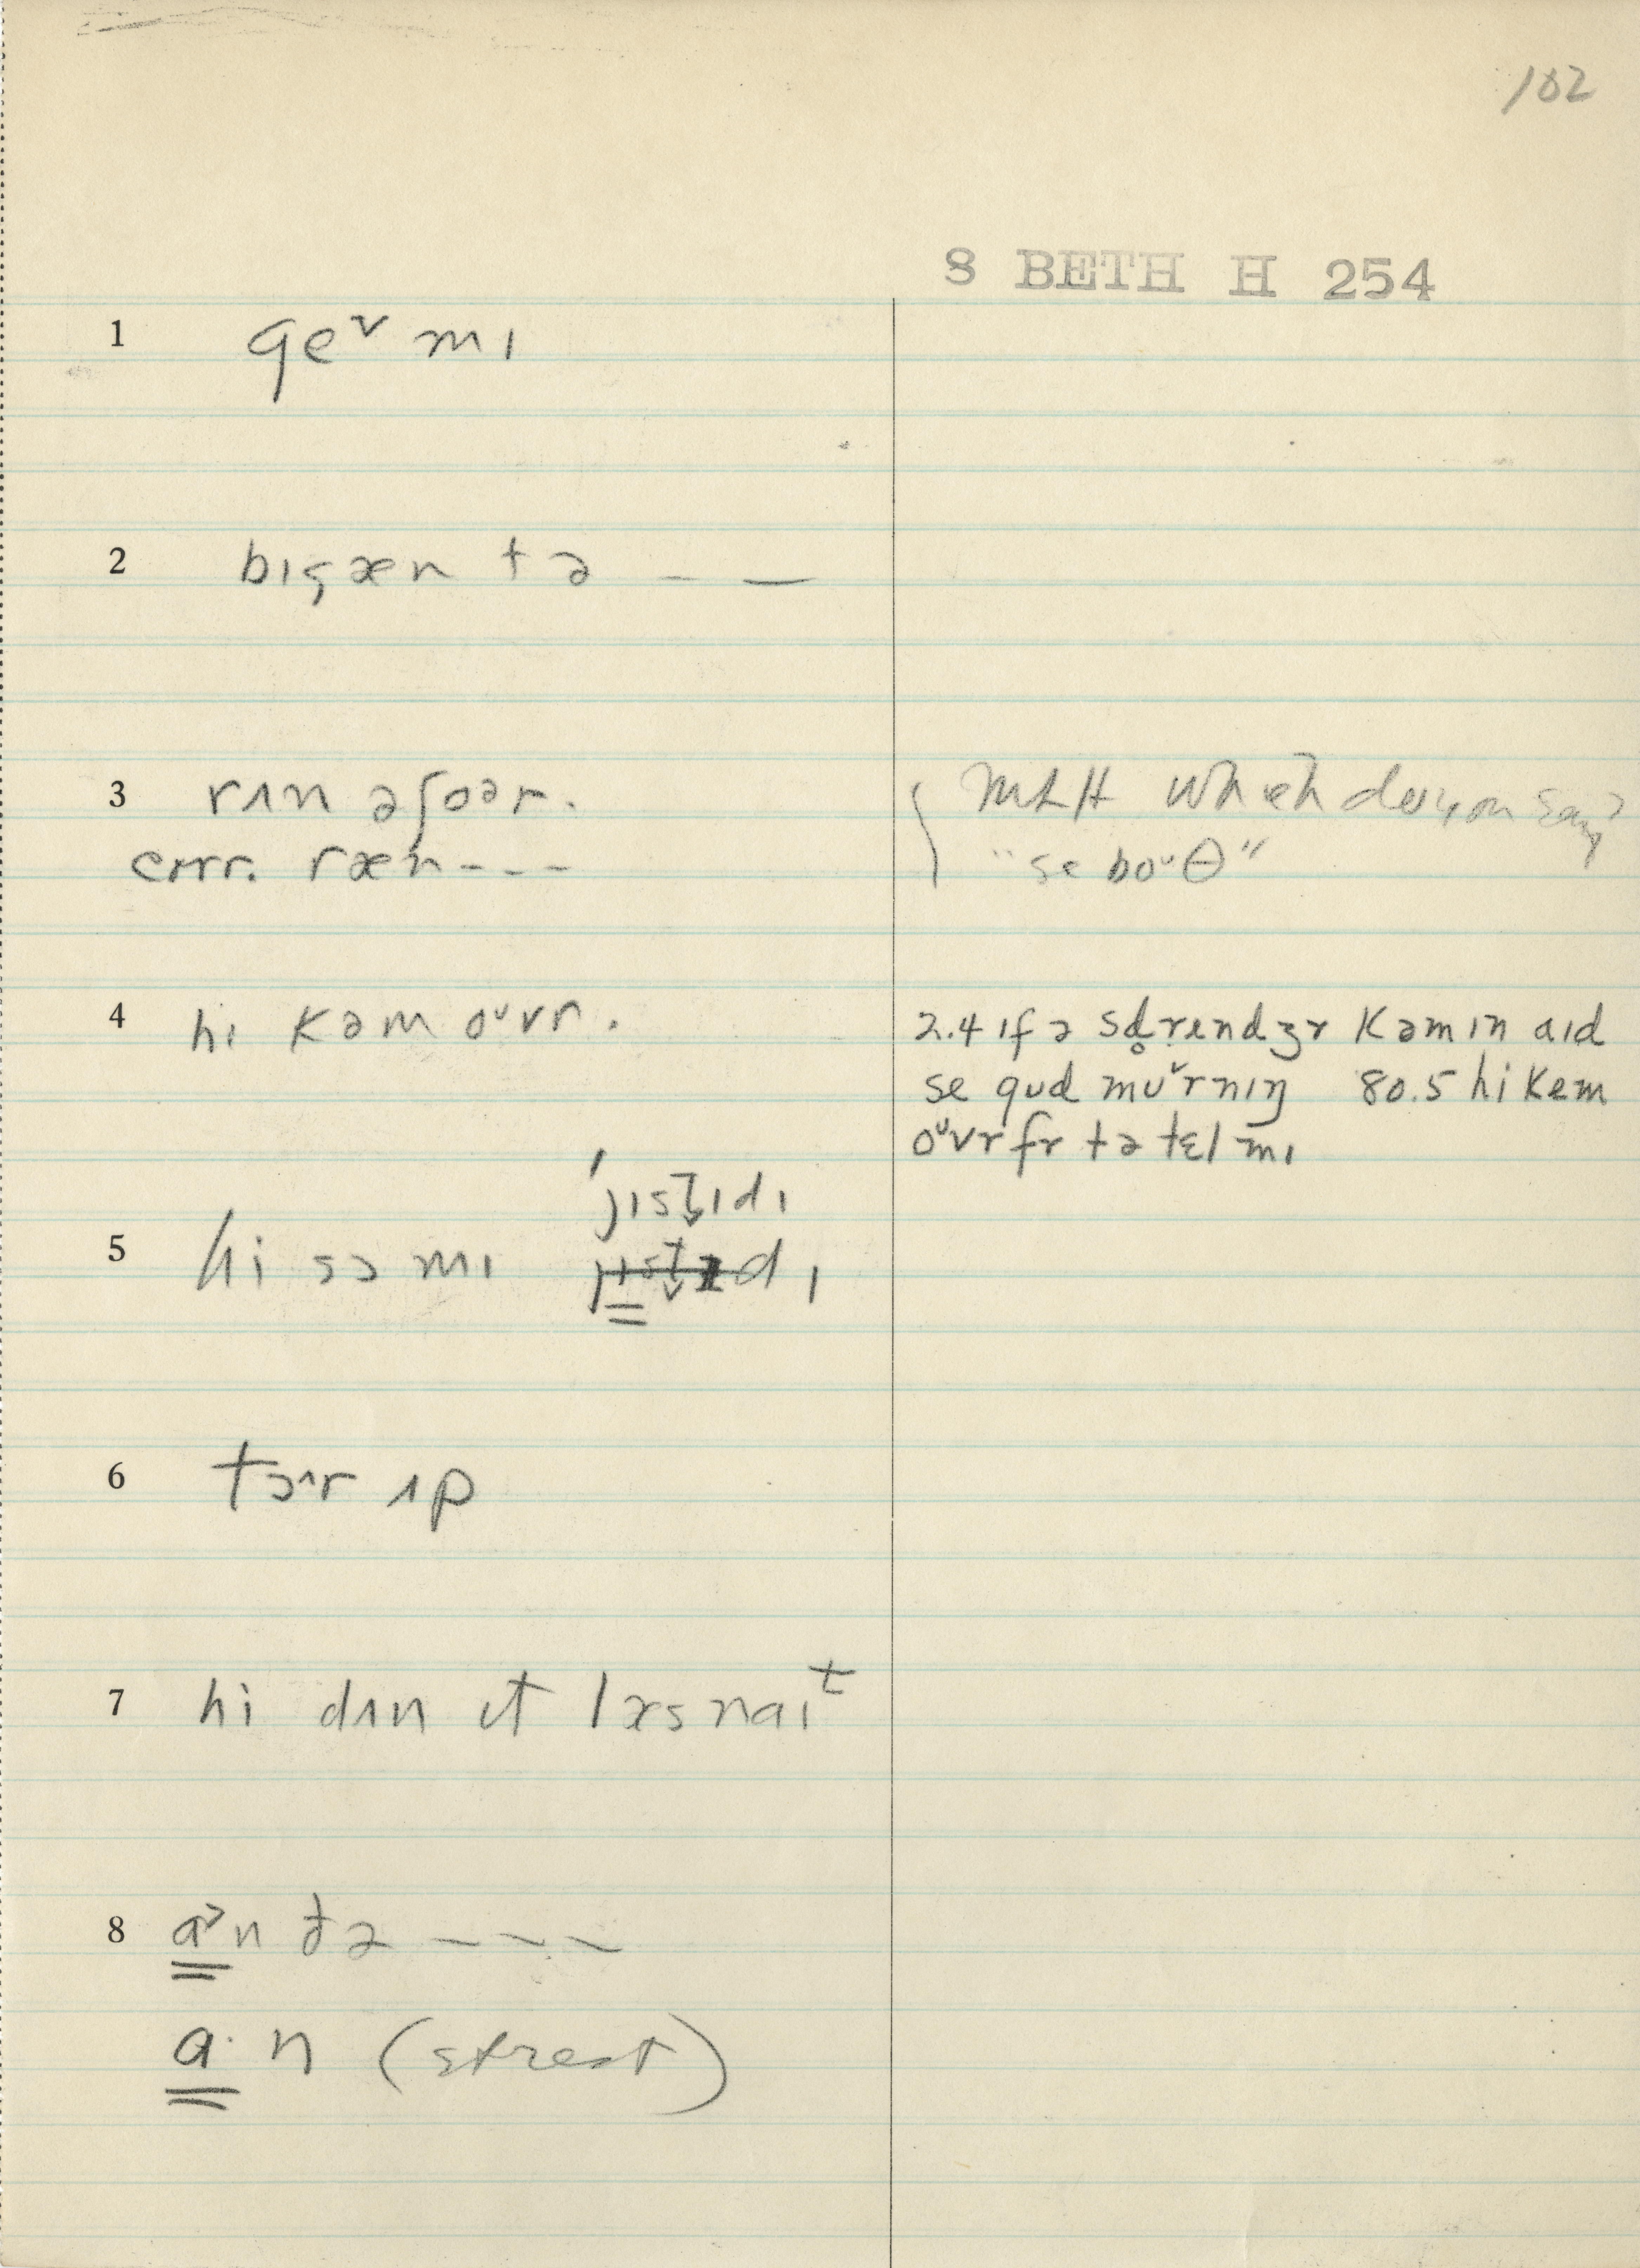 102
8 BETH H 254
1 ge˅ mɪ
2 bɪgæn tə – —
3 rʌn əʃoər.
corr. ræn - - -
MLH Which do you say?
"se boᶷθ"
4 hi kəm oᶷvr.
2.4 ɪf ə sd̥rendʒr kəm ɪn aɪd
se gud mu˅rnɪŋ 80.5 hi kem
oᶷvr fr tə tɛl mɪ
ˈjɪst̬ɪdɪ
5 hi sɔ mɪ jɪst̬ɪdɪ
6 tɔ^r ʌp
7 hi dʌn ɪt læs naɪᵗ
8 a˃n ðə – – –
a· n (street)